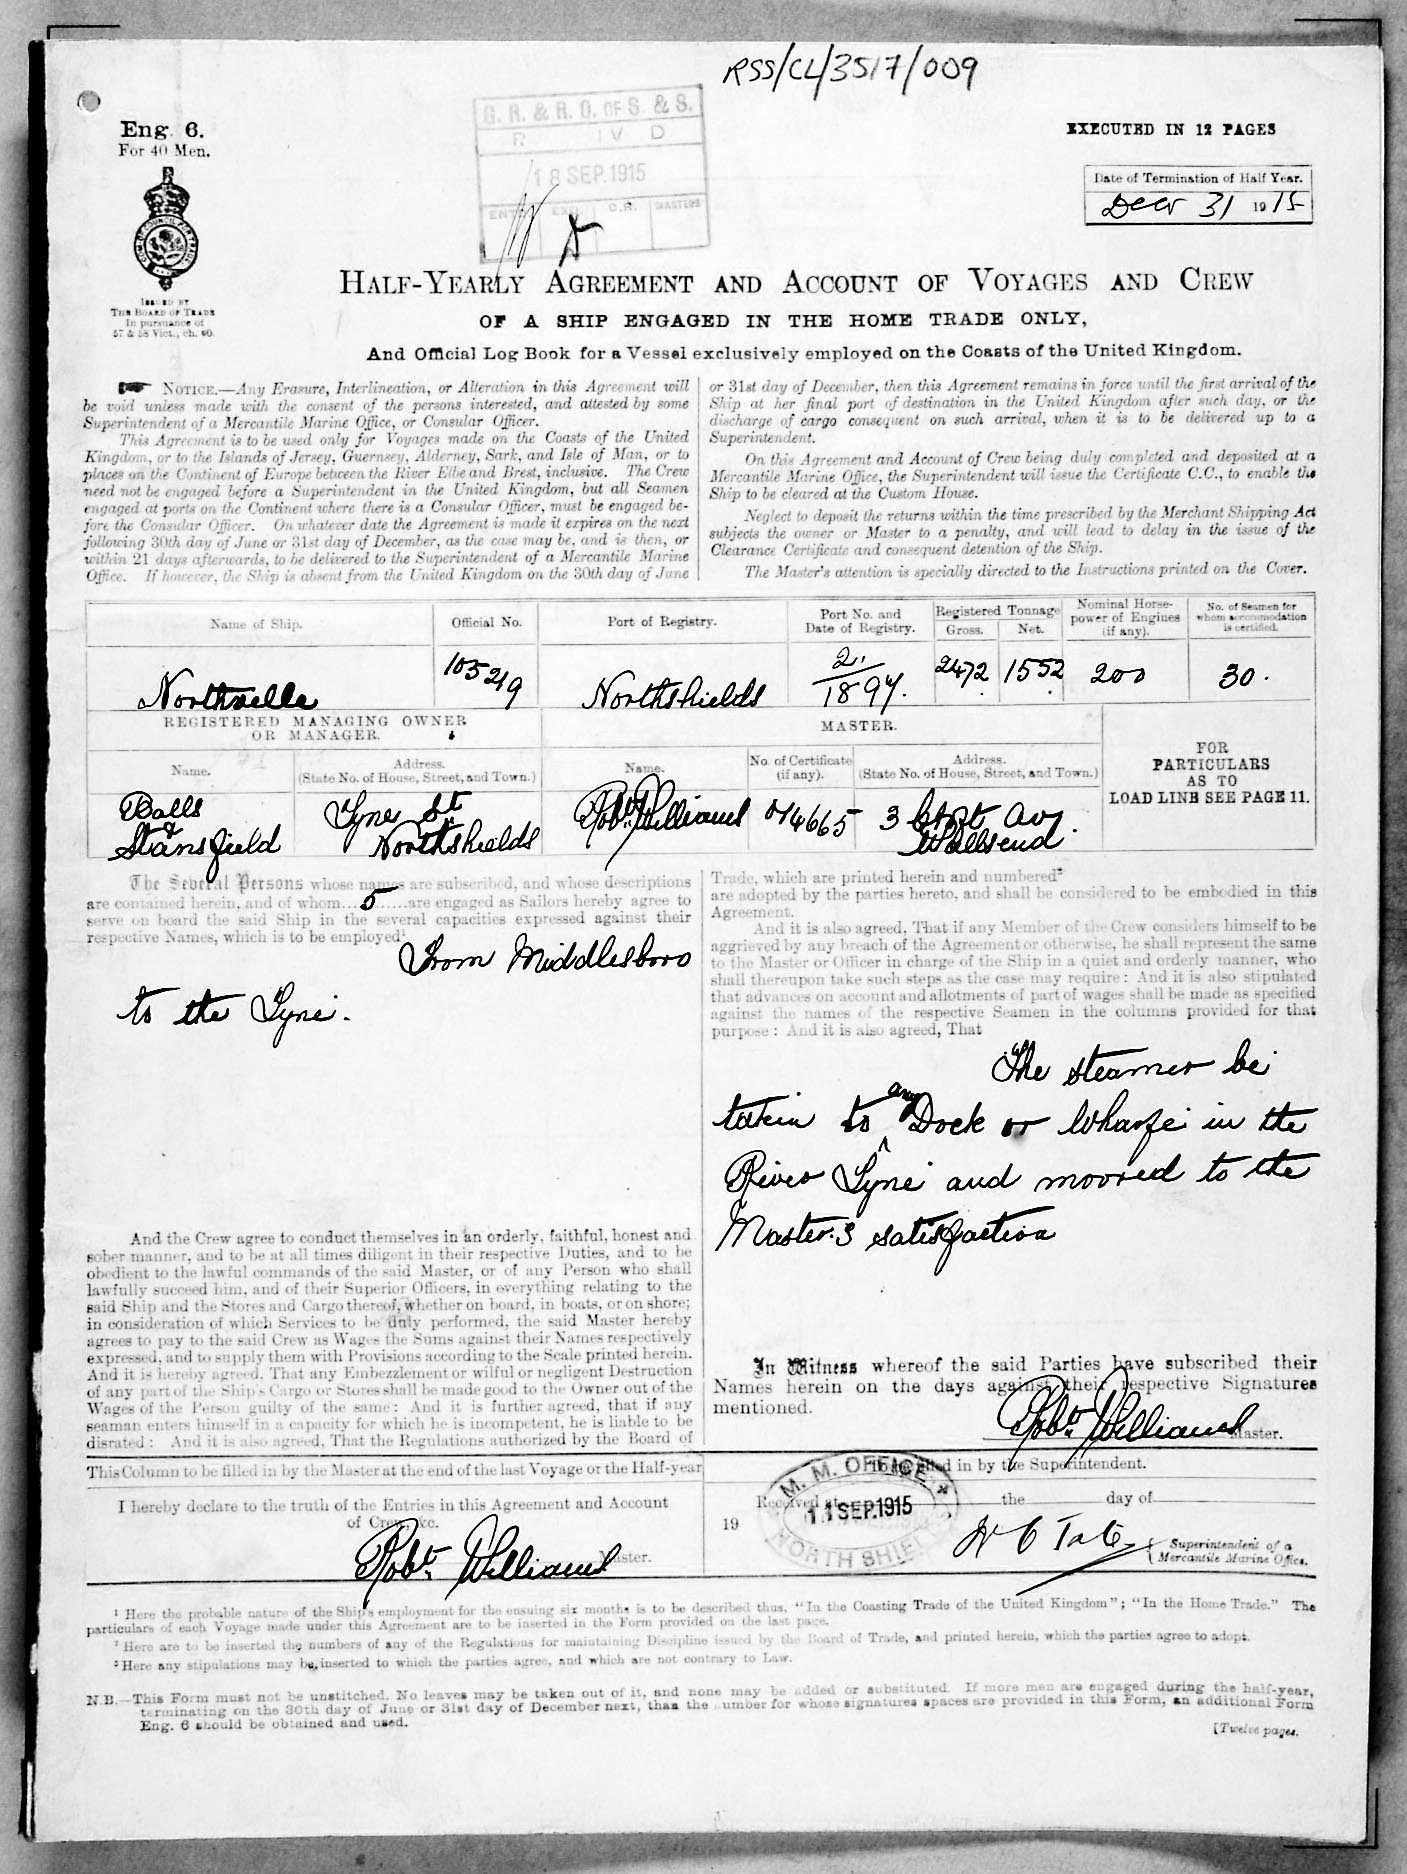 RSS/CL/3517/009
Eng. 6.
For 40 Men.
G. R. & R. O. OF S. & S.
R IV D
18 SEP. 1915
C.R. MASTERS
EXECUTED IN 12 PAGES
Date of Termination of Half Year.
Decr 31 1915
ISSUED BY
THE BOARD OF TRADE
In pursuance of
57 & 58 Vict., ch. 60.
HALF-YEARLY AGREEMENT AND ACCOUNT OF VOYAGES AND CREW
OF A SHIP ENGAGED IN THE HOME TRADE ONLY,
And Official Log Book for a Vessel exclusively employed on the Coasts of the United Kingdom.
NOTICE.—Any Erasure, Interlineation, or Alteration in this Agreement will
be void unless made with the consent of the persons interested, and attested by some
Superintendent of a Mercantile Marine Office, or Consular Officer.
This Agreement is to be used only for Voyages made on the Coasts of the United
Kingdom, or to the Islands of Jersey, Guernsey, Alderney, Sark, and Isle of Man, or to
places on the Continent of Europe between the River Elbe and Brest, inclusive. The Crew
need not be engaged before a Superintendent in the United Kingdom, but all Seamen
engaged at ports on the Continent where there is a Consular Officer, must be engaged be-
fore the Consular Officer. On whatever date the Agreement is made it expires on the next
following 30th day of June or 31st day of December, as the case may be, and is then, or
within 21 days afterwards, to be delivered to the Superintendent of a Mercantile Marine
Office. If however, the Ship is absent from the United Kingdom on the 30th day of June
or 31st day of December, then this Agreement remains in force until the first arrival of the
Ship at her final port of destination in the United Kingdom after such day, or the
discharge of cargo consequent on such arrival, when it is to be delivered up to a
Superintendent.
On this Agreement and Account of Crew being duly completed and deposited at a
Mercantile Marine Office, the Superintendent will issue the Certificate C.C., to enable the
Ship to be cleared at the Custom House.
Neglect to deposit the returns within the time prescribed by the Merchant Shipping Act
subjects the owner or Master to a penalty, and will lead to delay in the issue of the
Clearance Certificate and consequent detention of the Ship.
The Master's attention is specially directed to the Instructions printed on the Cover.
Name of Ship. Official No. Port of Registry. Port No. and Date of Registry. Registered Tonnage Gross. Net. Nominal Horse-power of Engines (if any). No. of Seamen for whom accommodation is certified.
Northville 105219 Northshields 2/1897. 2472 1552 200 30.
REGISTERED MANAGING OWNER
OR MANAGER.
MASTER.
Name. Address. (State No. of House, Street, and Town.) Name. No. of Certificate (if any). Address. (State No. of House, Street, and Town.)
FOR
PARTICULARS
AS TO
LOAD LINE SEE PAGE 11.
Balls
&
Stansfield
Tyne St
Northshields
Robt. Williams
014665
3 Av.
Wallsend
The Several Persons whose names are subscribed, and whose descriptions
are contained herein, and of whom...5...are engaged as Sailors hereby agree to
serve on board the said Ship in the several capacities expressed against their
respective Names, which is to be employed¹
From Middlesboro
to the Tyne.
And the Crew agree to conduct themselves in an orderly, faithful, honest and
sober manner, and to be at all times diligent in their respective Duties, and to be
obedient to the lawful commands of the said Master, or of any Person who shall
lawfully succeed him, and of their Superior Officers, in everything relating to the
said Ship and the Stores and Cargo thereof, whether on board, in boats, or on shore;
in consideration of which Services to be duly performed, the said Master hereby
agrees to pay to the said Crew as Wages the Sums against their Names respectively
expressed, and to supply them with Provisions according to the Scale printed herein.
And it is hereby agreed, That any Embezzlement or wilful or negligent Destruction
of any part of the Ship's Cargo or Stores shall be made good to the Owner out of the
Wages of the Person guilty of the same: And it is further agreed, that if any
seaman enters himself in a capacity for which he is incompetent, he is liable to be
disrated: And it is also agreed, That the Regulations authorized by the Board of
Trade, which are printed herein and numbered²
are adopted by the parties hereto, and shall be considered to be embodied in this
Agreement.
And it is also agreed, That if any Member of the Crew considers himself to be
aggrieved by any breach of the Agreement or otherwise, he shall represent the same
to the Master or Officer in charge of the Ship in a quiet and orderly manner, who
shall thereupon take such steps as the case may require: And it is also stipulated
that advances on account and allotments of part of wages shall be made as specified
against the names of the respective Seamen in the columns provided for that
purpose: And it is also agreed, That
The steamer be
taken to any Dock or Wharfe in the
River Tyne and moored to the
Master.s satisfaction
In Witness whereof the said Parties have subscribed their
Names herein on the days against their respective Signatures
mentioned.
Robt. Williams Master.
This Column to be filled in by the Master at the end of the last Voyage or the Half-year
I hereby declare to the truth of the Entries in this Agreement and Account
of Crew, &c.
Robt. Williams Master.
To be filled in by the Superintendent.
Received at the day of
19
M. M. OFFICE
11 SEP. 1915
NORTH SHIE
Superintendent of a
Mercantile Marine Office.
¹ Here the probable nature of the Ship's employment for the ensuing six months is to be described thus, "In the Coasting Trade of the United Kingdom"; "In the Home Trade." The
particulars of each Voyage made under this Agreement are to be inserted in the Form provided on the last page.
² Here are to be inserted the numbers of any of the Regulations for maintaining Discipline issued by the Board of Trade, and printed herein, which the parties agree to adopt.
³ Here any stipulations may be inserted to which the parties agree, and which are not contrary to Law.
N.B.—This Form must not be unstitched. No leaves may be taken out of it, and none may be added or substituted. If more men are engaged during the half-year,
terminating on the 30th day of June or 31st day of December next, than the umber for whose signatures spaces are provided in this Form, an additional Form
Eng. 6 should be obtained and used.
[Twelve pages.